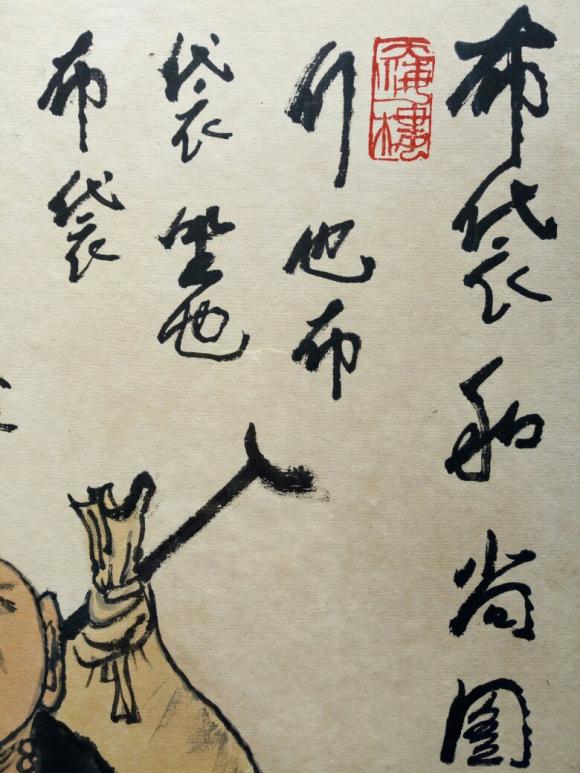 布袋和尚图
行也布
袋坐也
布袋